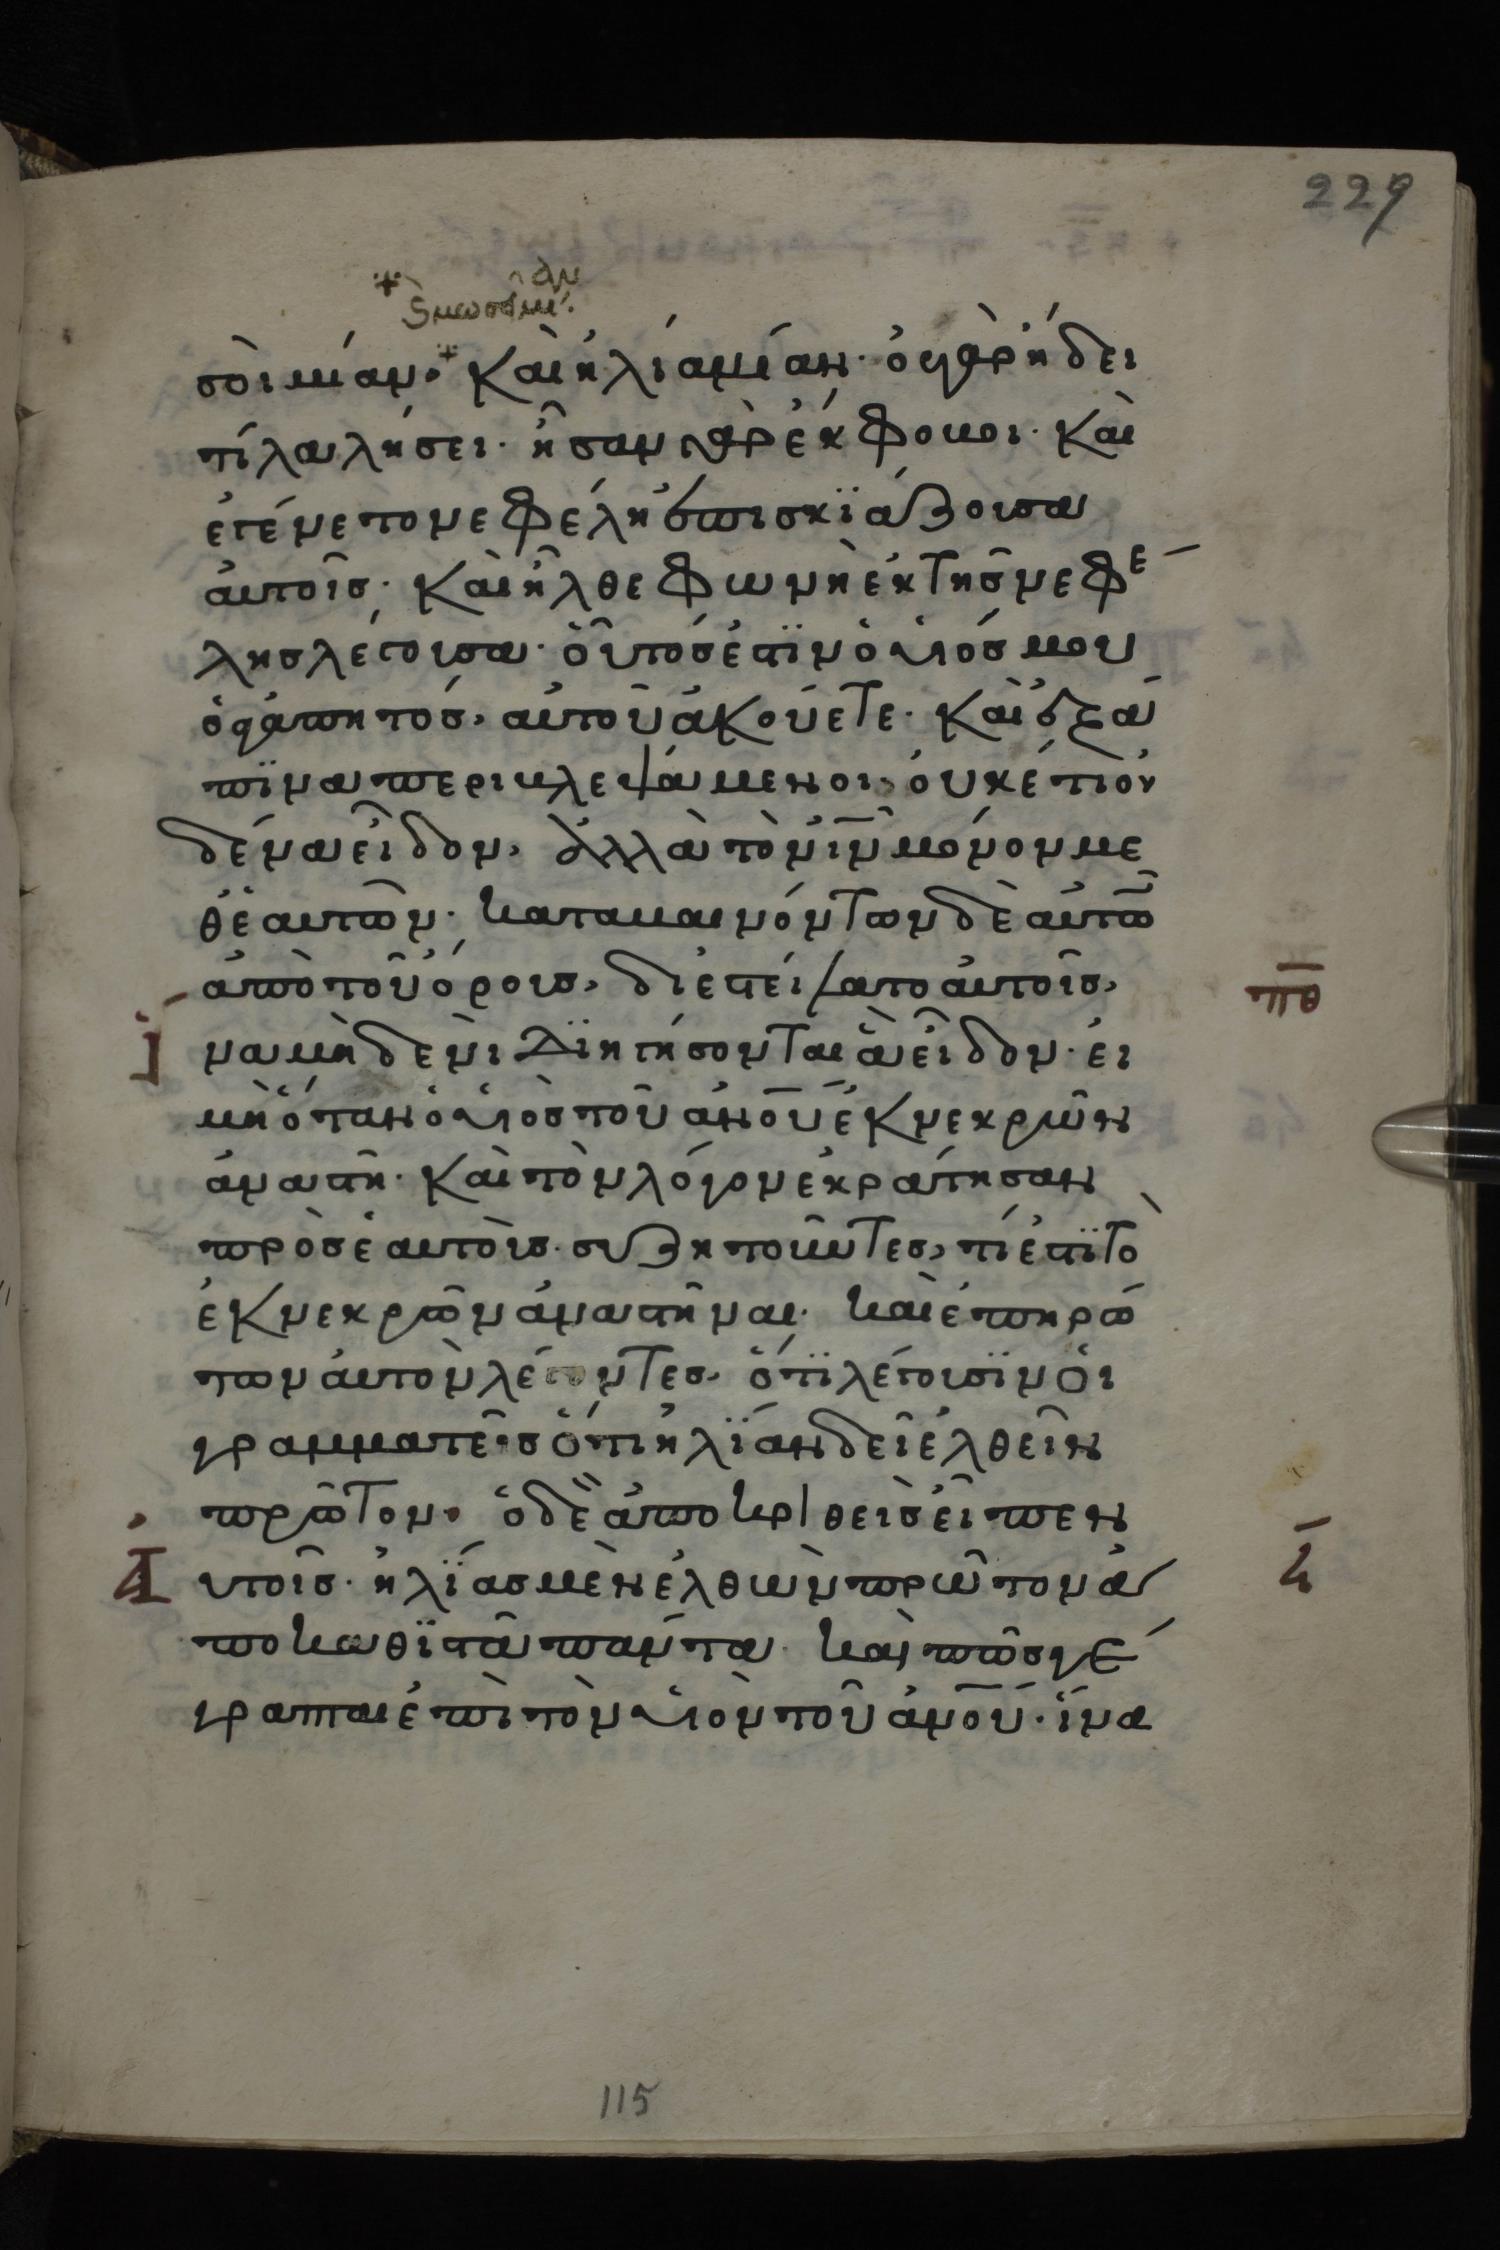 229
ϗ μωσῆ μίαν
σοὶ μίαν· καὶ ἠλία μίαν· οὐ γὰρ ἤδει
τί λαλήσει· ἦσαν γὰρ ἔκφοβοι· καὶ
ἐγένετο νεφέλη ἐπισκϊάζουσα
αὐτοῖς· καὶ ἦλθε φωνὴ ἐκ τῆς νεφέ
λης λέγουσα· οὗτός ἐστϊν ὁ υἱός μου
ὁ ἀγαπητός, αὐτοῦ ἀκούετε· καὶ ἐξά
πϊνα περιβλεψάμενοι, οὐκέτι οὐ
δένα εἶδον, ἀλλὰ τὸν ἰν μόνον με
θ' ἑαυτῶν· καταβαινόντων δὲ αὐτῶ
ἀπὸ τοῦ ὄρους, διεστείλατο αὐτοῖς,
ἵ
να μηδενὶ διηγήσονται ἃ εἶδον· εἰ
πθ
μὴ ὅταν ὁ υἱὸς τοῦ ἀνου ἐκ νεκρῶν
ἀναστῆ· καὶ τὸν λόγον ἐκράτησαν
πρὸς ἑαυτοὺς συζητοῦντες, τί ἐστϊ τὸ
ἐκ νεκρῶν ἀναστῆναι· καὶ ἐπηρώ
των αὐτὸν λέγοντες, ὅτϊ λέγουσϊν οἱ
γραμματεῖς ὅτι ἠλϊαν δεῖ ἐλθεῖν
πρῶτον· ὁ δὲ ἀποκριθεὶς εἶπεν
ἀ
υτοῖς· ἠλϊας μὲν ἐλθὼν πρῶτον ἀ
ποκαθϊστᾶ πάντα· καὶ πῶς γέ
γραπται ἐπὶ τὸν υἱὸν τοῦ ἀνου· ἵνα
115